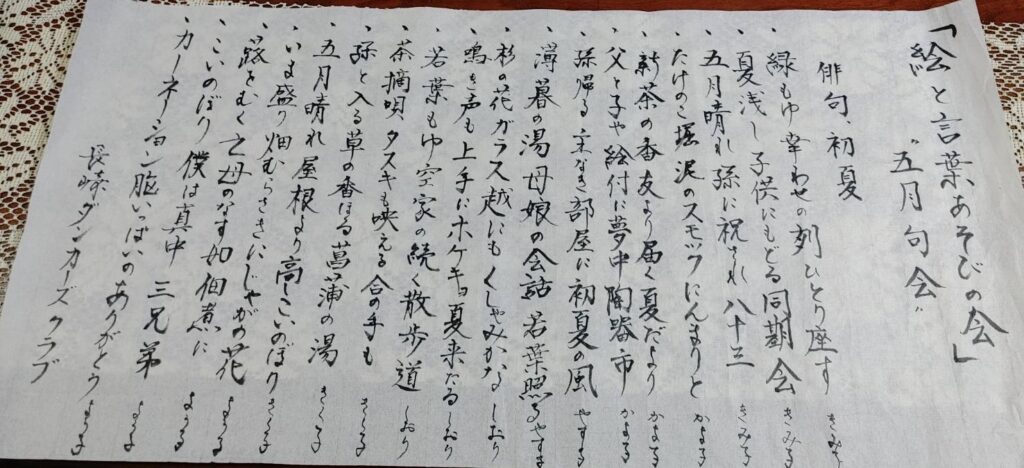 「絵と言葉あそびの会」
"五月句会"
俳句、初夏
・緑もゆ幸わせの列ひとり座す きみ子
・夏浅し子供にもどる同期会 きみ子
・五月晴れ孫に祝され八十三 きみ子
・たけのこ堀泥のスモックにんまりと かよ子
・新茶の香友より届く夏だより かよ子
・父と子や絵付に夢中陶器市 かよ子
・孫帰る主なき部屋に初夏の風 やす子
・薄暮の湯母娘の会話若葉照る やす子
・杉の花ガラス越にもくしゃみかな しおり
・鳴き声も上手にホケキョ夏来たる しおり
・若葉もゆ空家の続く散歩道 しおり
・茶摘唄タスキも映える合の手も きく子
・孫と入る草の香ほる菖蒲の湯 きく子
・五月晴れ屋根より高しこいのぼり きく子
・いま盛り畑むらさきにじゃがの花
・蕗をむく亡母のなす如佃煮に よう子
・こいのぼり僕は真中三兄弟 よう子
・カーネーション腕いっぱいのありがとう よう子
長崎ダンカーズクラブ